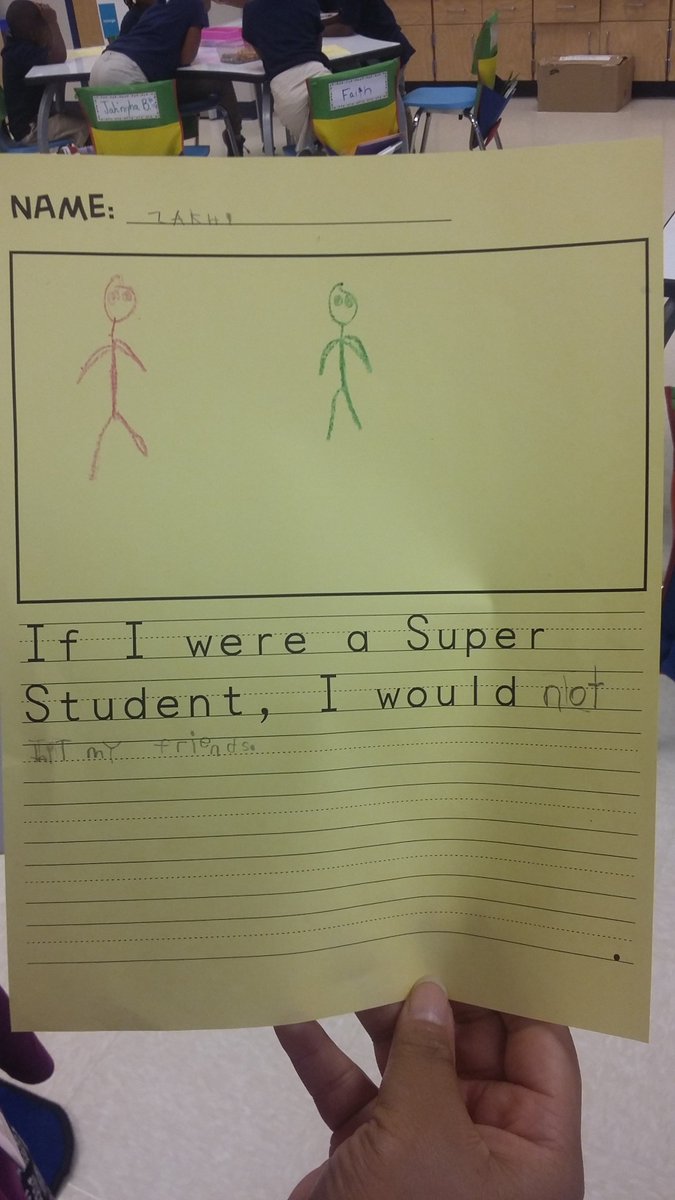 Jahingha B.
Faith
NAME: ZAKHI
If I were a Super
Student, I would not
my friends.